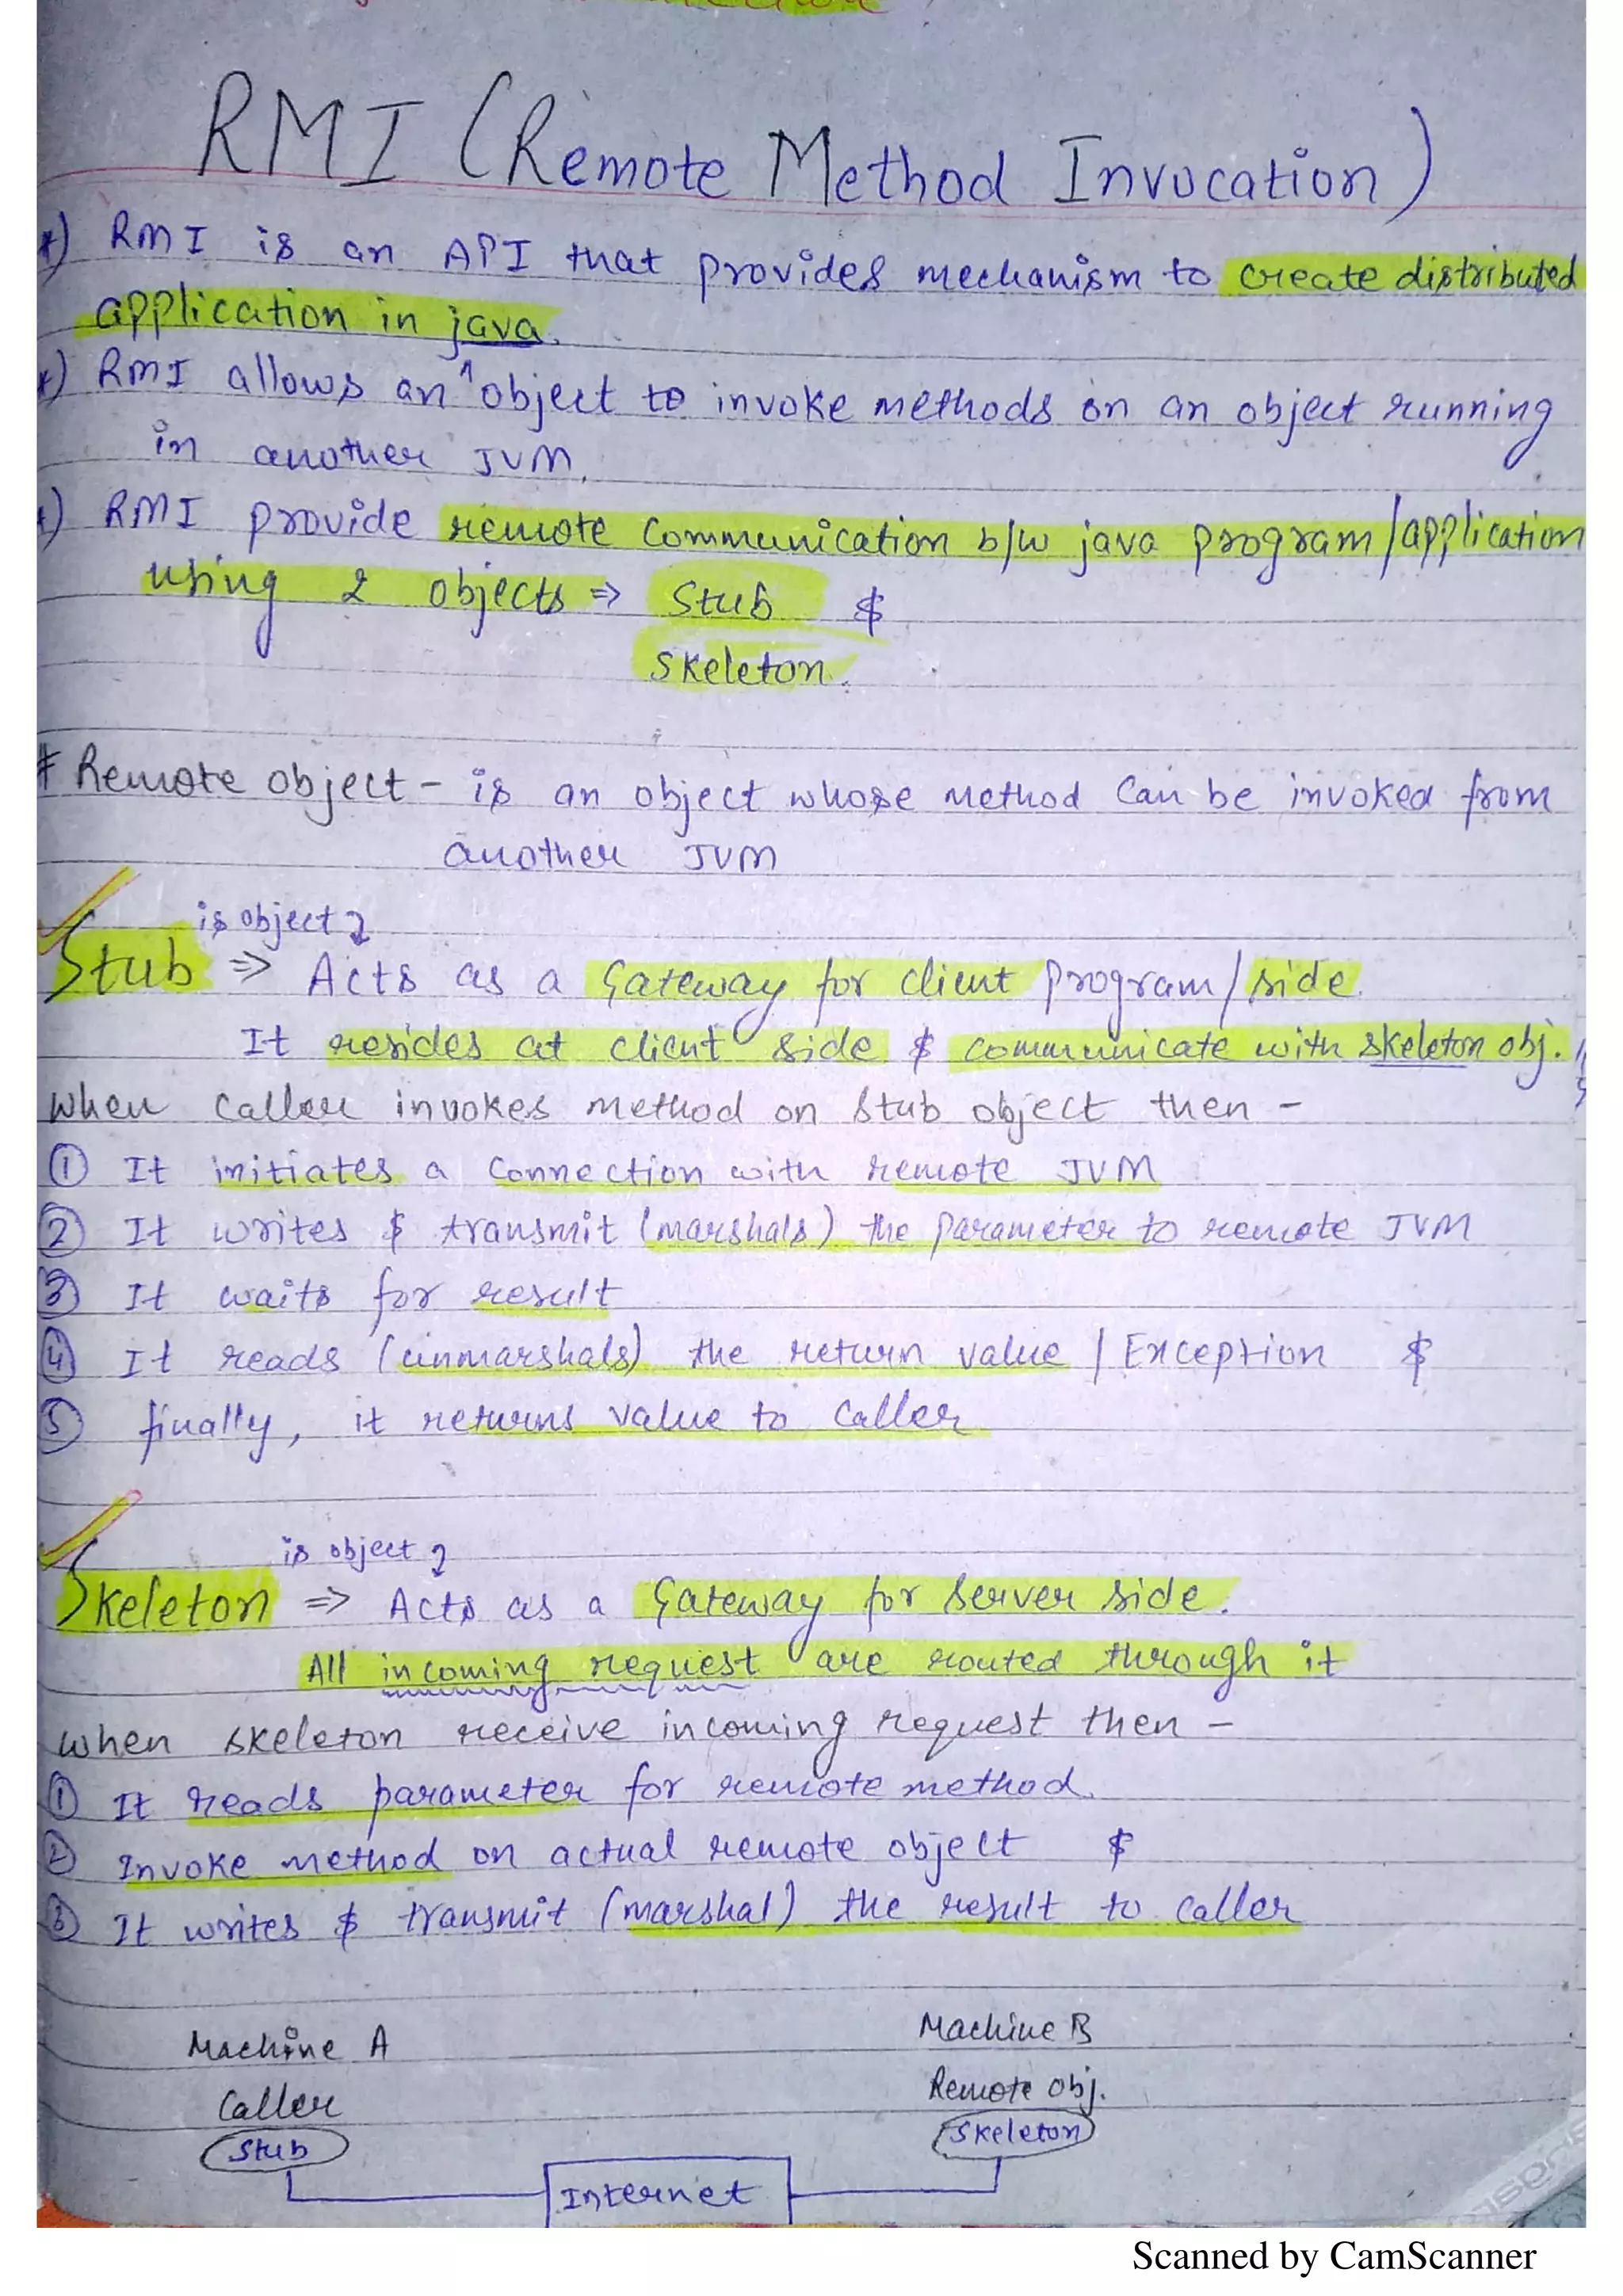 RMI (Remote Method Invocation)
*) RMI is an API that provides mechanism to create distributed
application in java.
*) RMI allows an object to invoke methods on an object running
in another JVM.
*) RMI provide remote communication b/w java program/application
using 2 objects ⇒ Stub &
Skeleton.
# Remote object - is an object whose method can be invoked from
another JVM
is object
Stub ⇒ Acts as a Gateway for client program/side.
It resides at client side & communicate with skeleton obj.
when caller invokes method on stub object then -
① It initiates a connection with remote JVM
② It writes & transmit (marshals) the parameter to remote JVM
③ It waits for result
④ It reads (unmarshals) the return value / Exception &
⑤ finally, it returns value to caller
is object
Skeleton ⇒ Acts as a Gateway for Server side.
All incoming request are routed through it
when skeleton receive incoming request then -
① It reads parameter for remote method.
② Invoke method on actual remote object &
③ It writes & transmit (marshal) the result to caller
Machine A Machine B
Caller Remote obj.
Stub Skeleton
Internet
Scanned by CamScanner